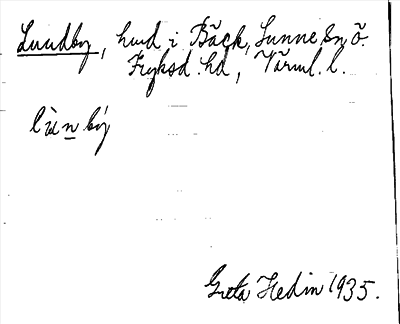 Lundby, hmd i Bäck, Sunne Sn, Ö.
Fryksd. hd, Värml. l.
lùn bý
Greta Hedin 1935.